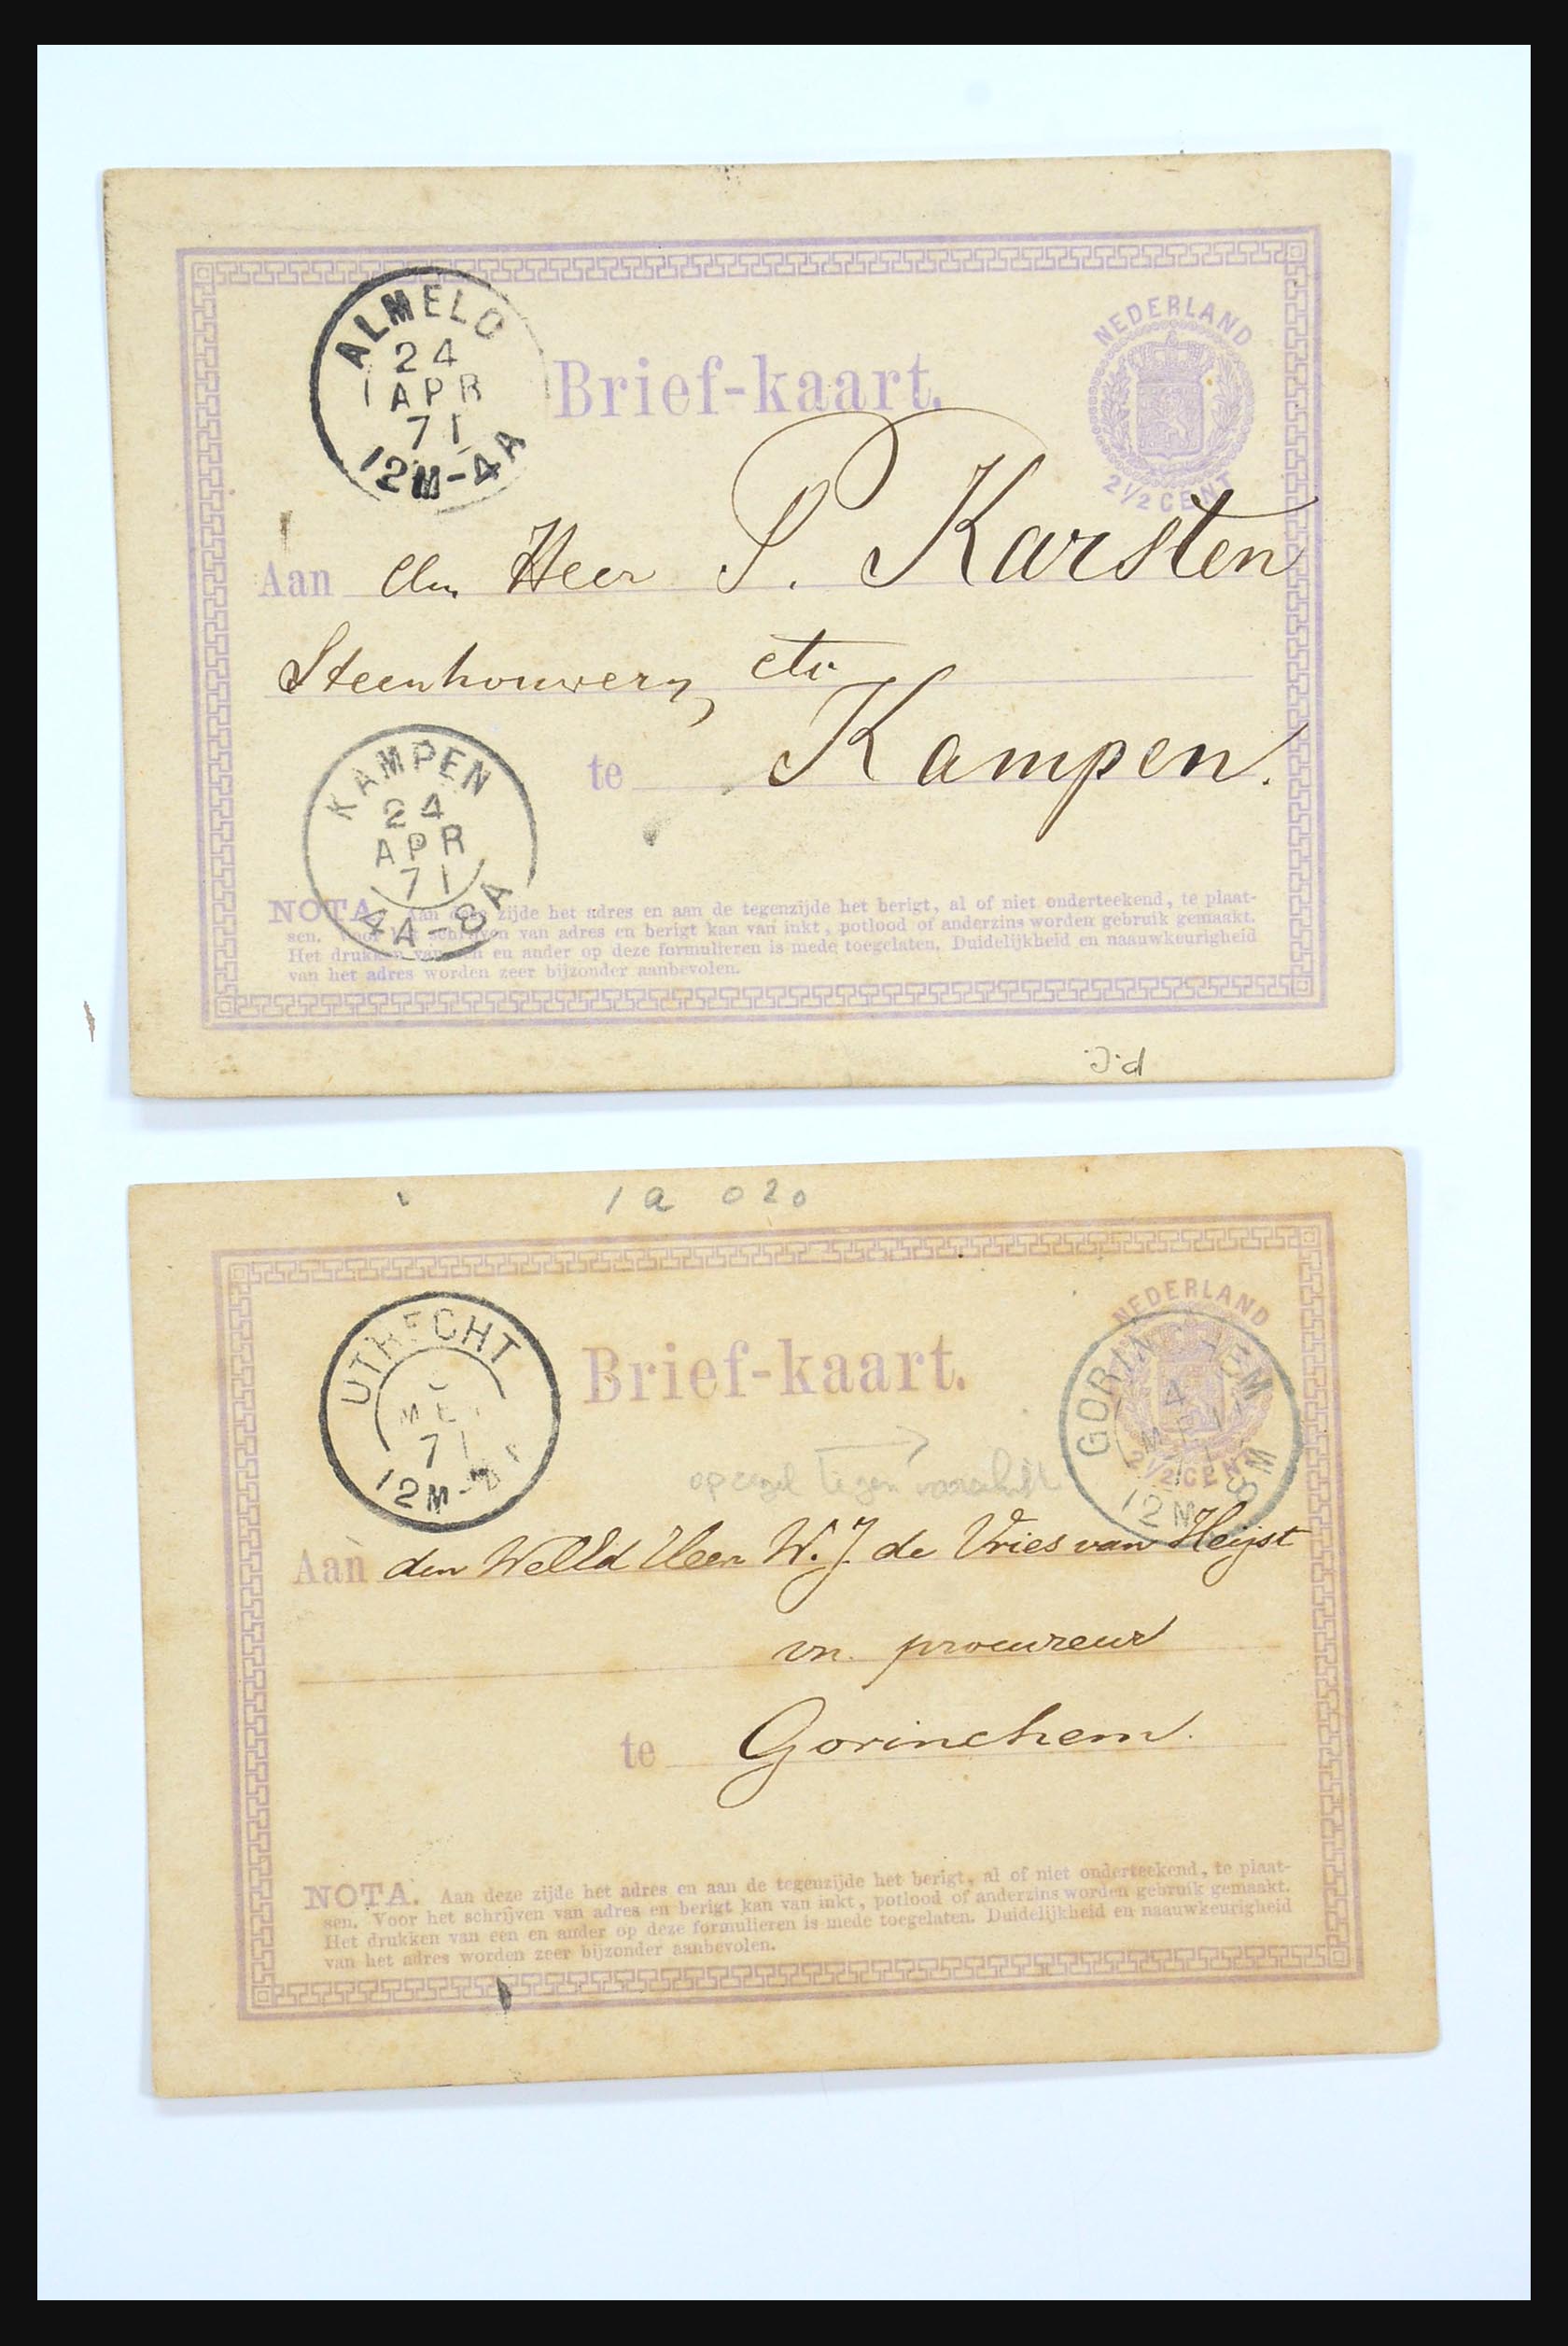 ALMELO
24
APR
71
12M-4A
NEDERLAND
2½ CENT
Brief-kaart.
Aan den Heer P. Karsten
Steenhouwery, etc
te Kampen.
KAMPEN
24
APR
71
4A-8A
NOTA. Aan deze zijde het adres en aan de tegenzijde het berigt, al of niet onderteekend, te plaat-
sen. Voor het schrijven van adres en berigt kan van inkt, potlood of anderzins worden gebruik gemaakt.
Het drukken van een en ander op deze formulieren is mede toegelaten. Duidelijkheid en naauwkeurigheid
van het adres worden zeer bijzonder aanbevolen.
1a 020
UTRECHT
MEI
71
12M-
NEDERLAND
2½ CENT
GORINCHEM
4
MEI
71
12M-8M
Brief-kaart.
tegen voorschrift
Aan den WelEd Heer W. J. de Vries van Heijst
vn. procureur
te Gorinchem.
NOTA. Aan deze zijde het adres en aan de tegenzijde het berigt, al of niet onderteekend, te plaat-
sen. Voor het schrijven van adres en berigt kan van inkt, potlood of anderzins worden gebruik gemaakt.
Het drukken van een en ander op deze formulieren is mede toegelaten. Duidelijkheid en naauwkeurigheid
van het adres worden zeer bijzonder aanbevolen.